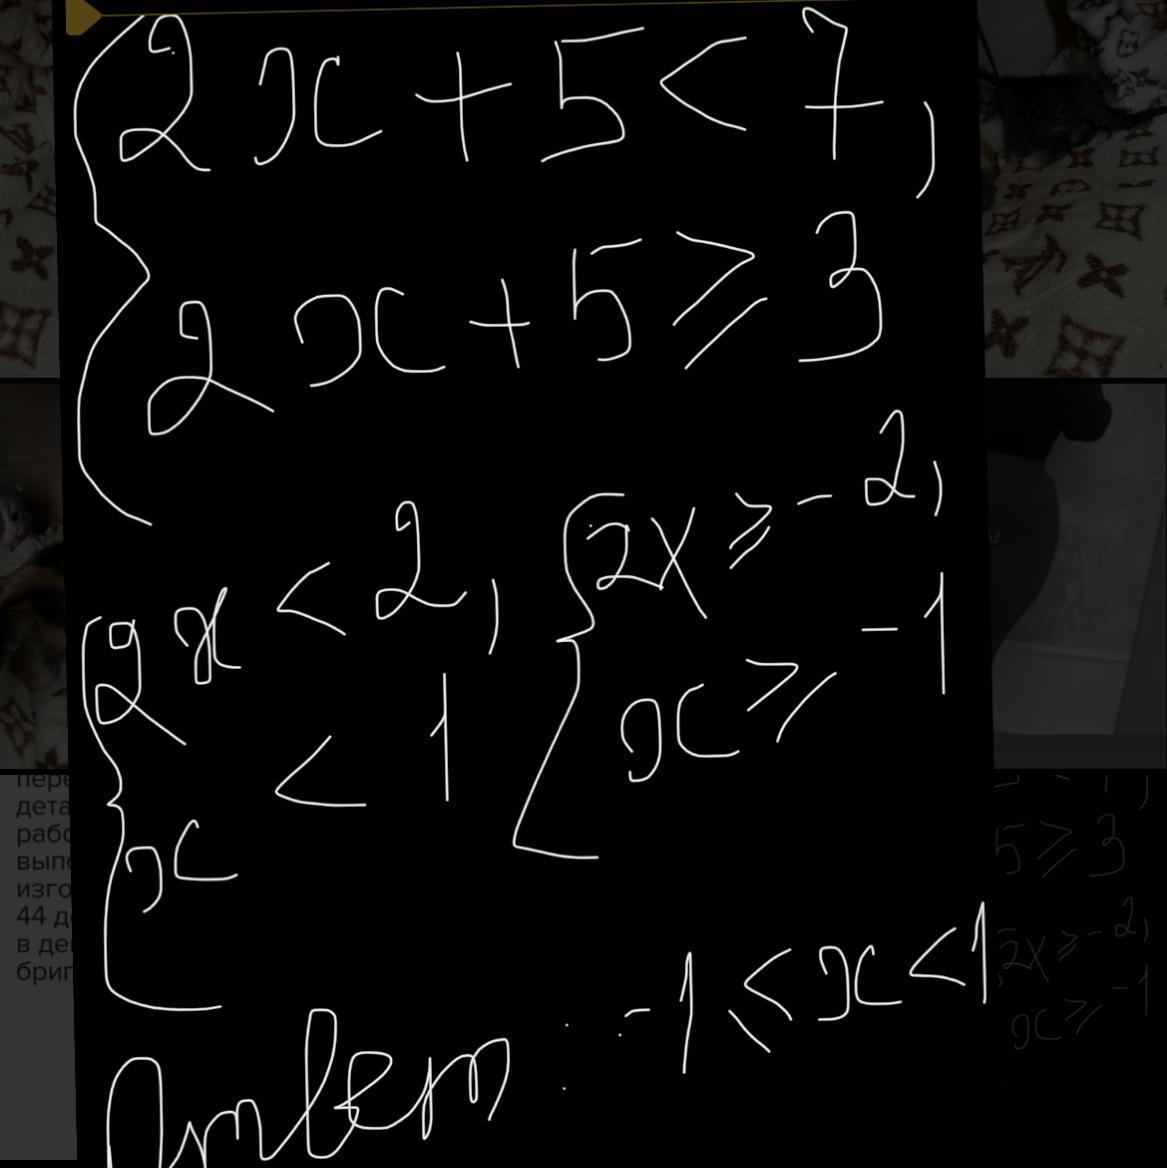 2x + 5 < 7,
2x + 5 ⩾ 3
2x < 2,
x < 1
2x ⩾ -2,
x ⩾ -1
Ответ: -1 ⩽ x < 1
дета
рабо
вып
изго
44 д
в де
бриг
5 ⩾ 3
2x ⩾ -2,
x ⩾ -1